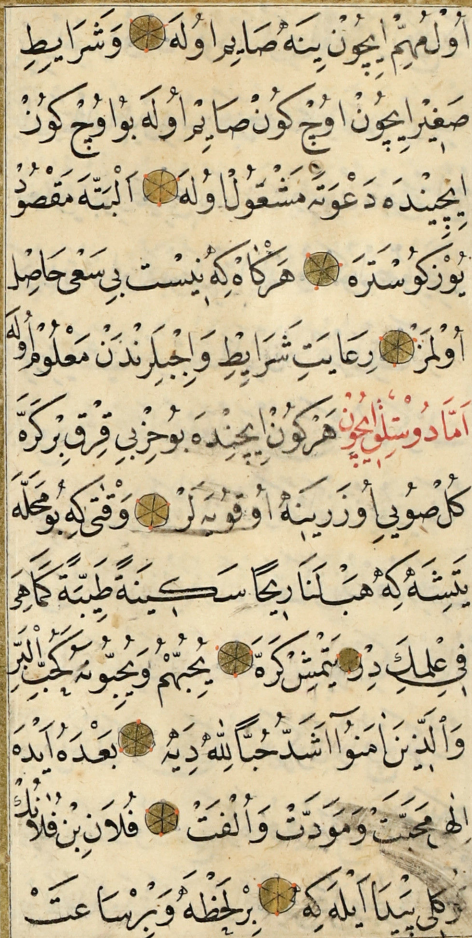 اُولْ مُهِمّ اِيچُونْ يِنَه صَايِم اُولَه وَشَرَايِطِ
صَغِير اِيچُونْ اوُچ كُونْ صَايِمْ اُولَه بُو اوُچ كُونْ
اِيچِينْدَه دَعْوَتَه مَشْغُولْ اُولَه اَلْبَتَّه مَقْصُودْ
يُوزْ كَوسْتَرَه هَرْكَاه كِه نِيسْت بِي سَعْى حَاصِل
اُولْمَزْ رِعَايتِ شَرَايِطِ وَاجِبلَرنْدَنْ مَعْلُومْ اُوله
اَمَّا دُوسْتلِق اِيچُون هَرْ كُونْ اِيچِنْدَه بُو حِزْبِي قِرْق بِر كَرَّه
كُلْ صُويِى اُوزَرِينَه اُوقُويَه لَرْ وَقْتَى كِه بُو مَحَلَّه
يَتِشَه كِه هَبْ لَنَا رِيحًا سَكِينَةً طَيِّبَةً كَمَا هِىَ
فِى عِلْمِكَ دِر يَتْمِشْ كَرَّه يُحِبُّهُمْ وَيُحِبُّونَه كَحُبِّ الْبَرِّ
وَالَّذِينَ اٰمَنُوا اَشَدُّ حُبًّا لِلّٰه دِيَه بَعْدَه اَيْدَه
اِلٰهِى مَحَبَّتْ وَمَوَدَّتْ وَاُلْفَتْ فُلاَن بِنْ فُلاَنُكْ
كُوكْلِى پَيْدَا اَيْلَه كِه بِرْ لَحْظَه وَ بِرْ سَاعَتْ